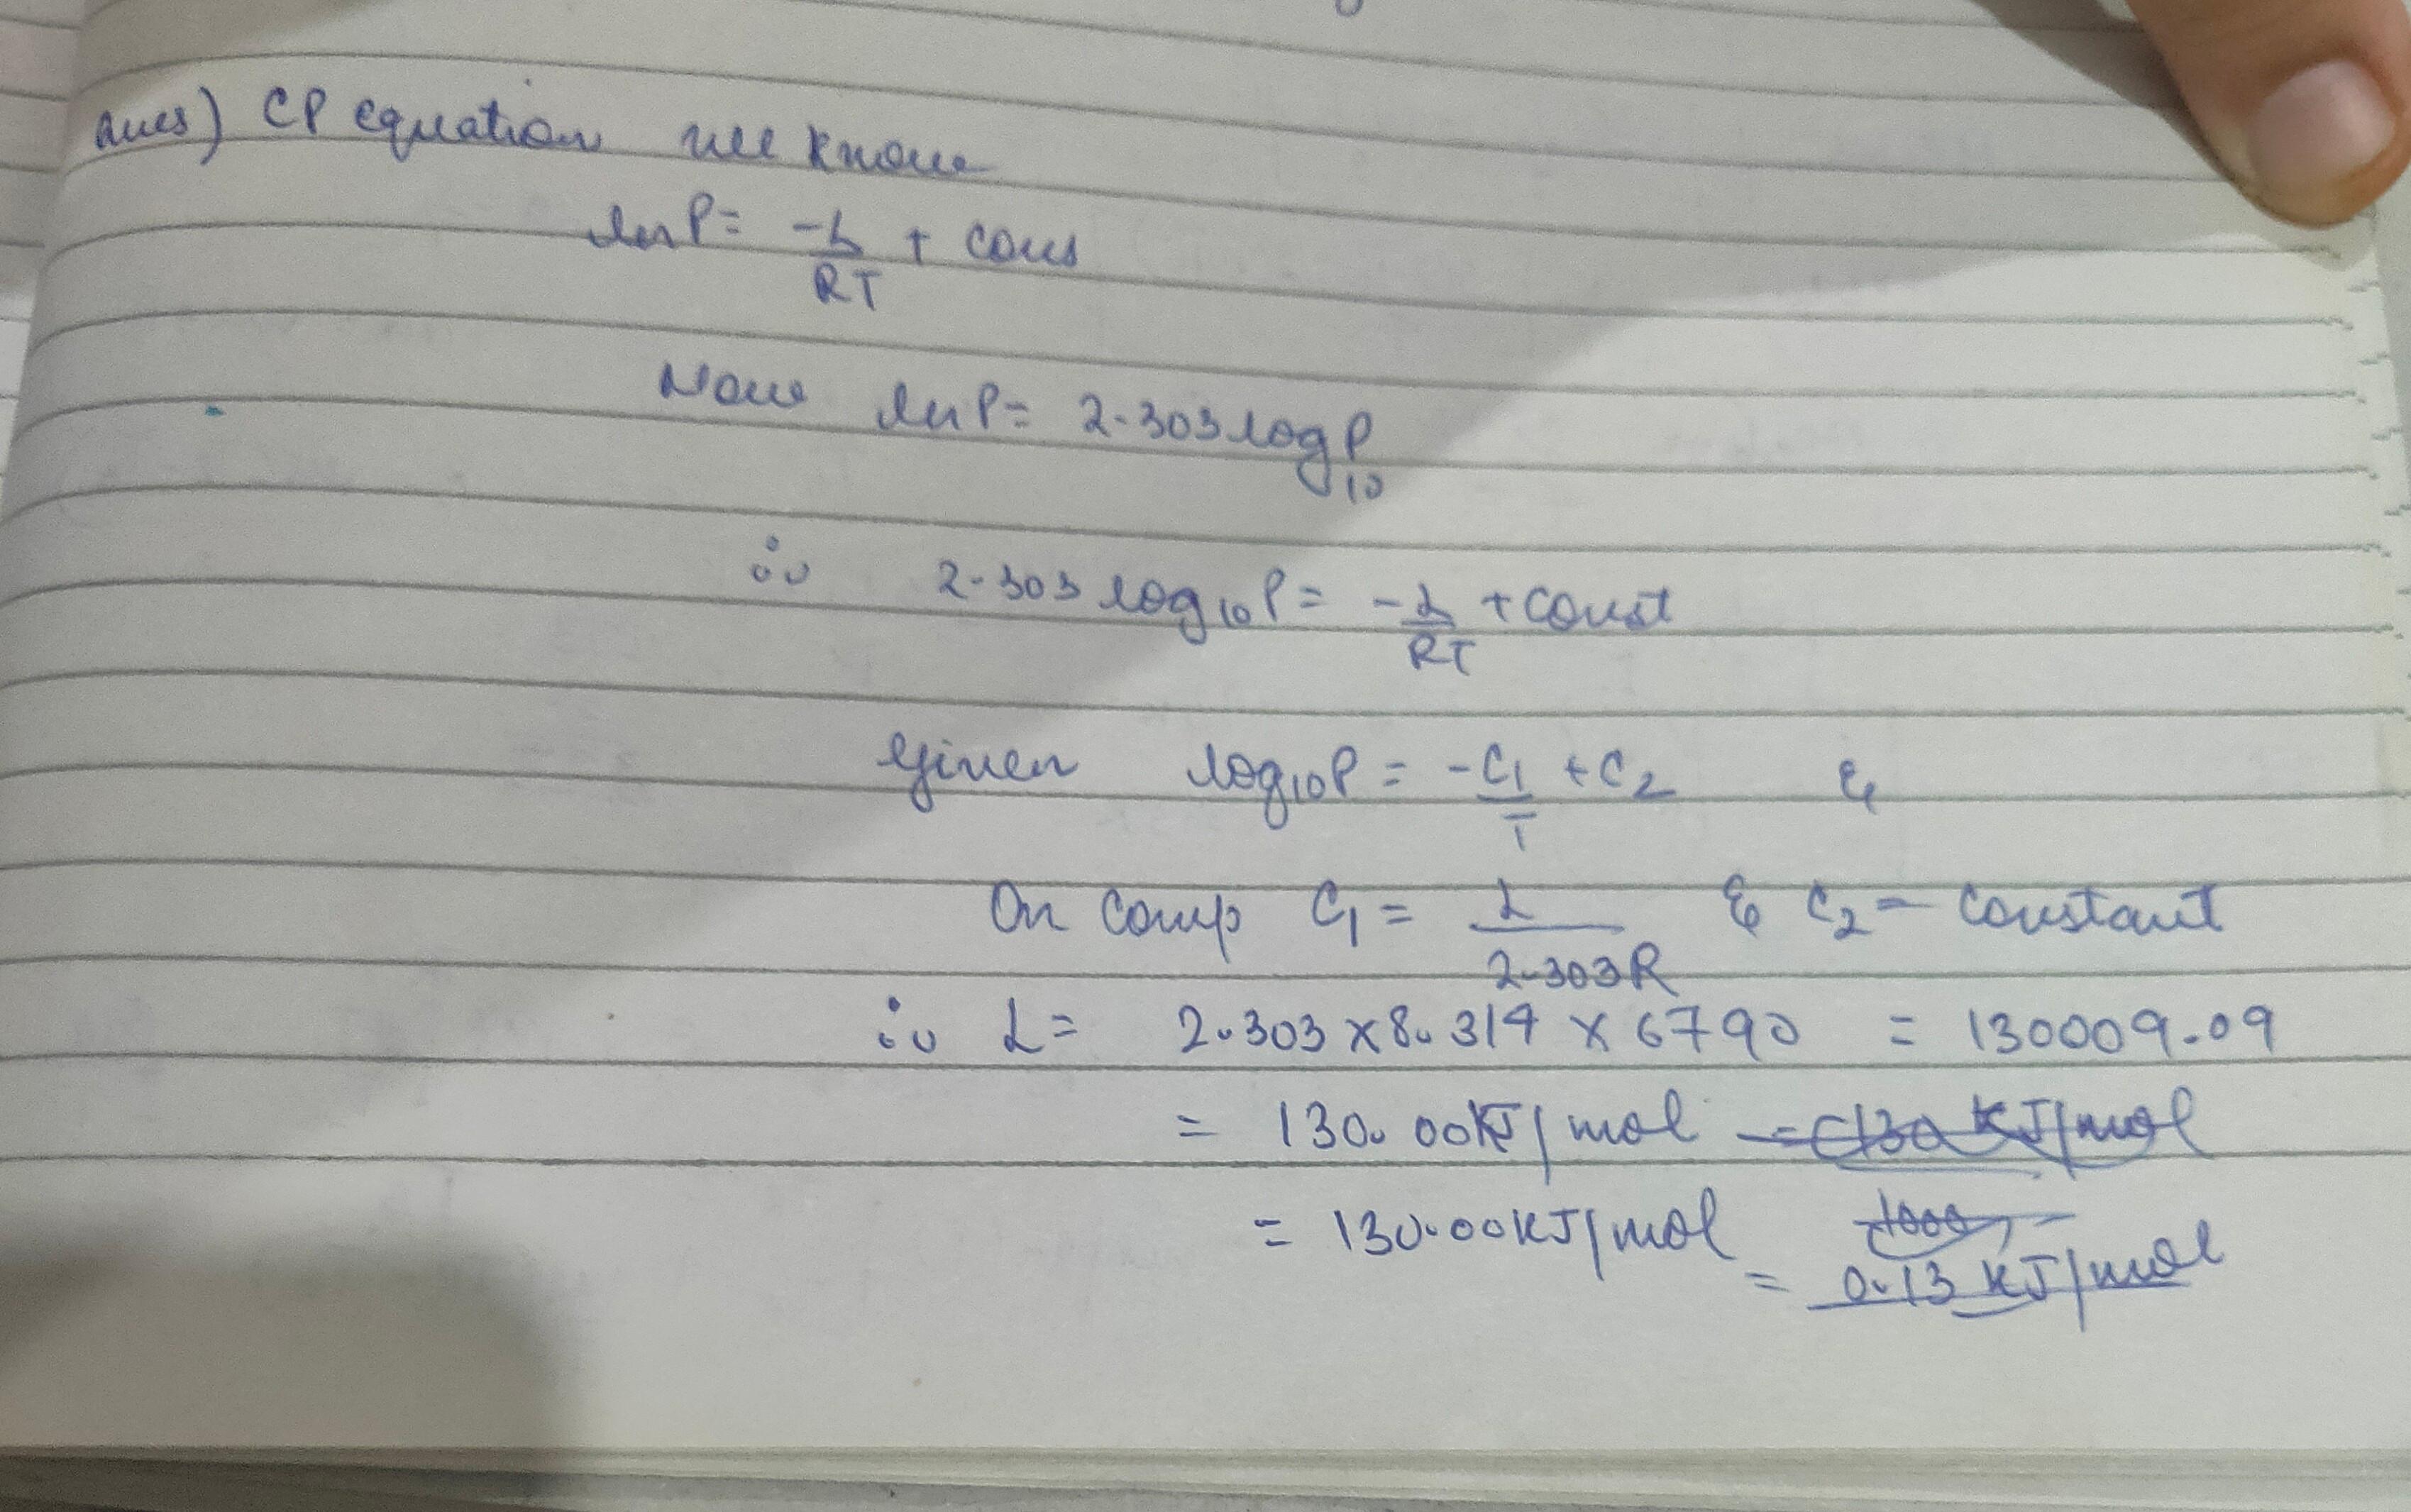 Ans) CP equation we know
lnP = -L/RT + cons
Now lnP = 2.303 log P 10
∴ 2.303 log10 P = -L/RT + const
Given log10 P = -C1/T + C2 &
On comp C1 = L/2.303R & C2 = constant
∴ L = 2.303 x 8.314 x 6790 = 130009.09
= 130.00 kJ/mol = 130 kJ/mol
= 130.00 kJ/mol 1000
= 0.13 kJ/mol